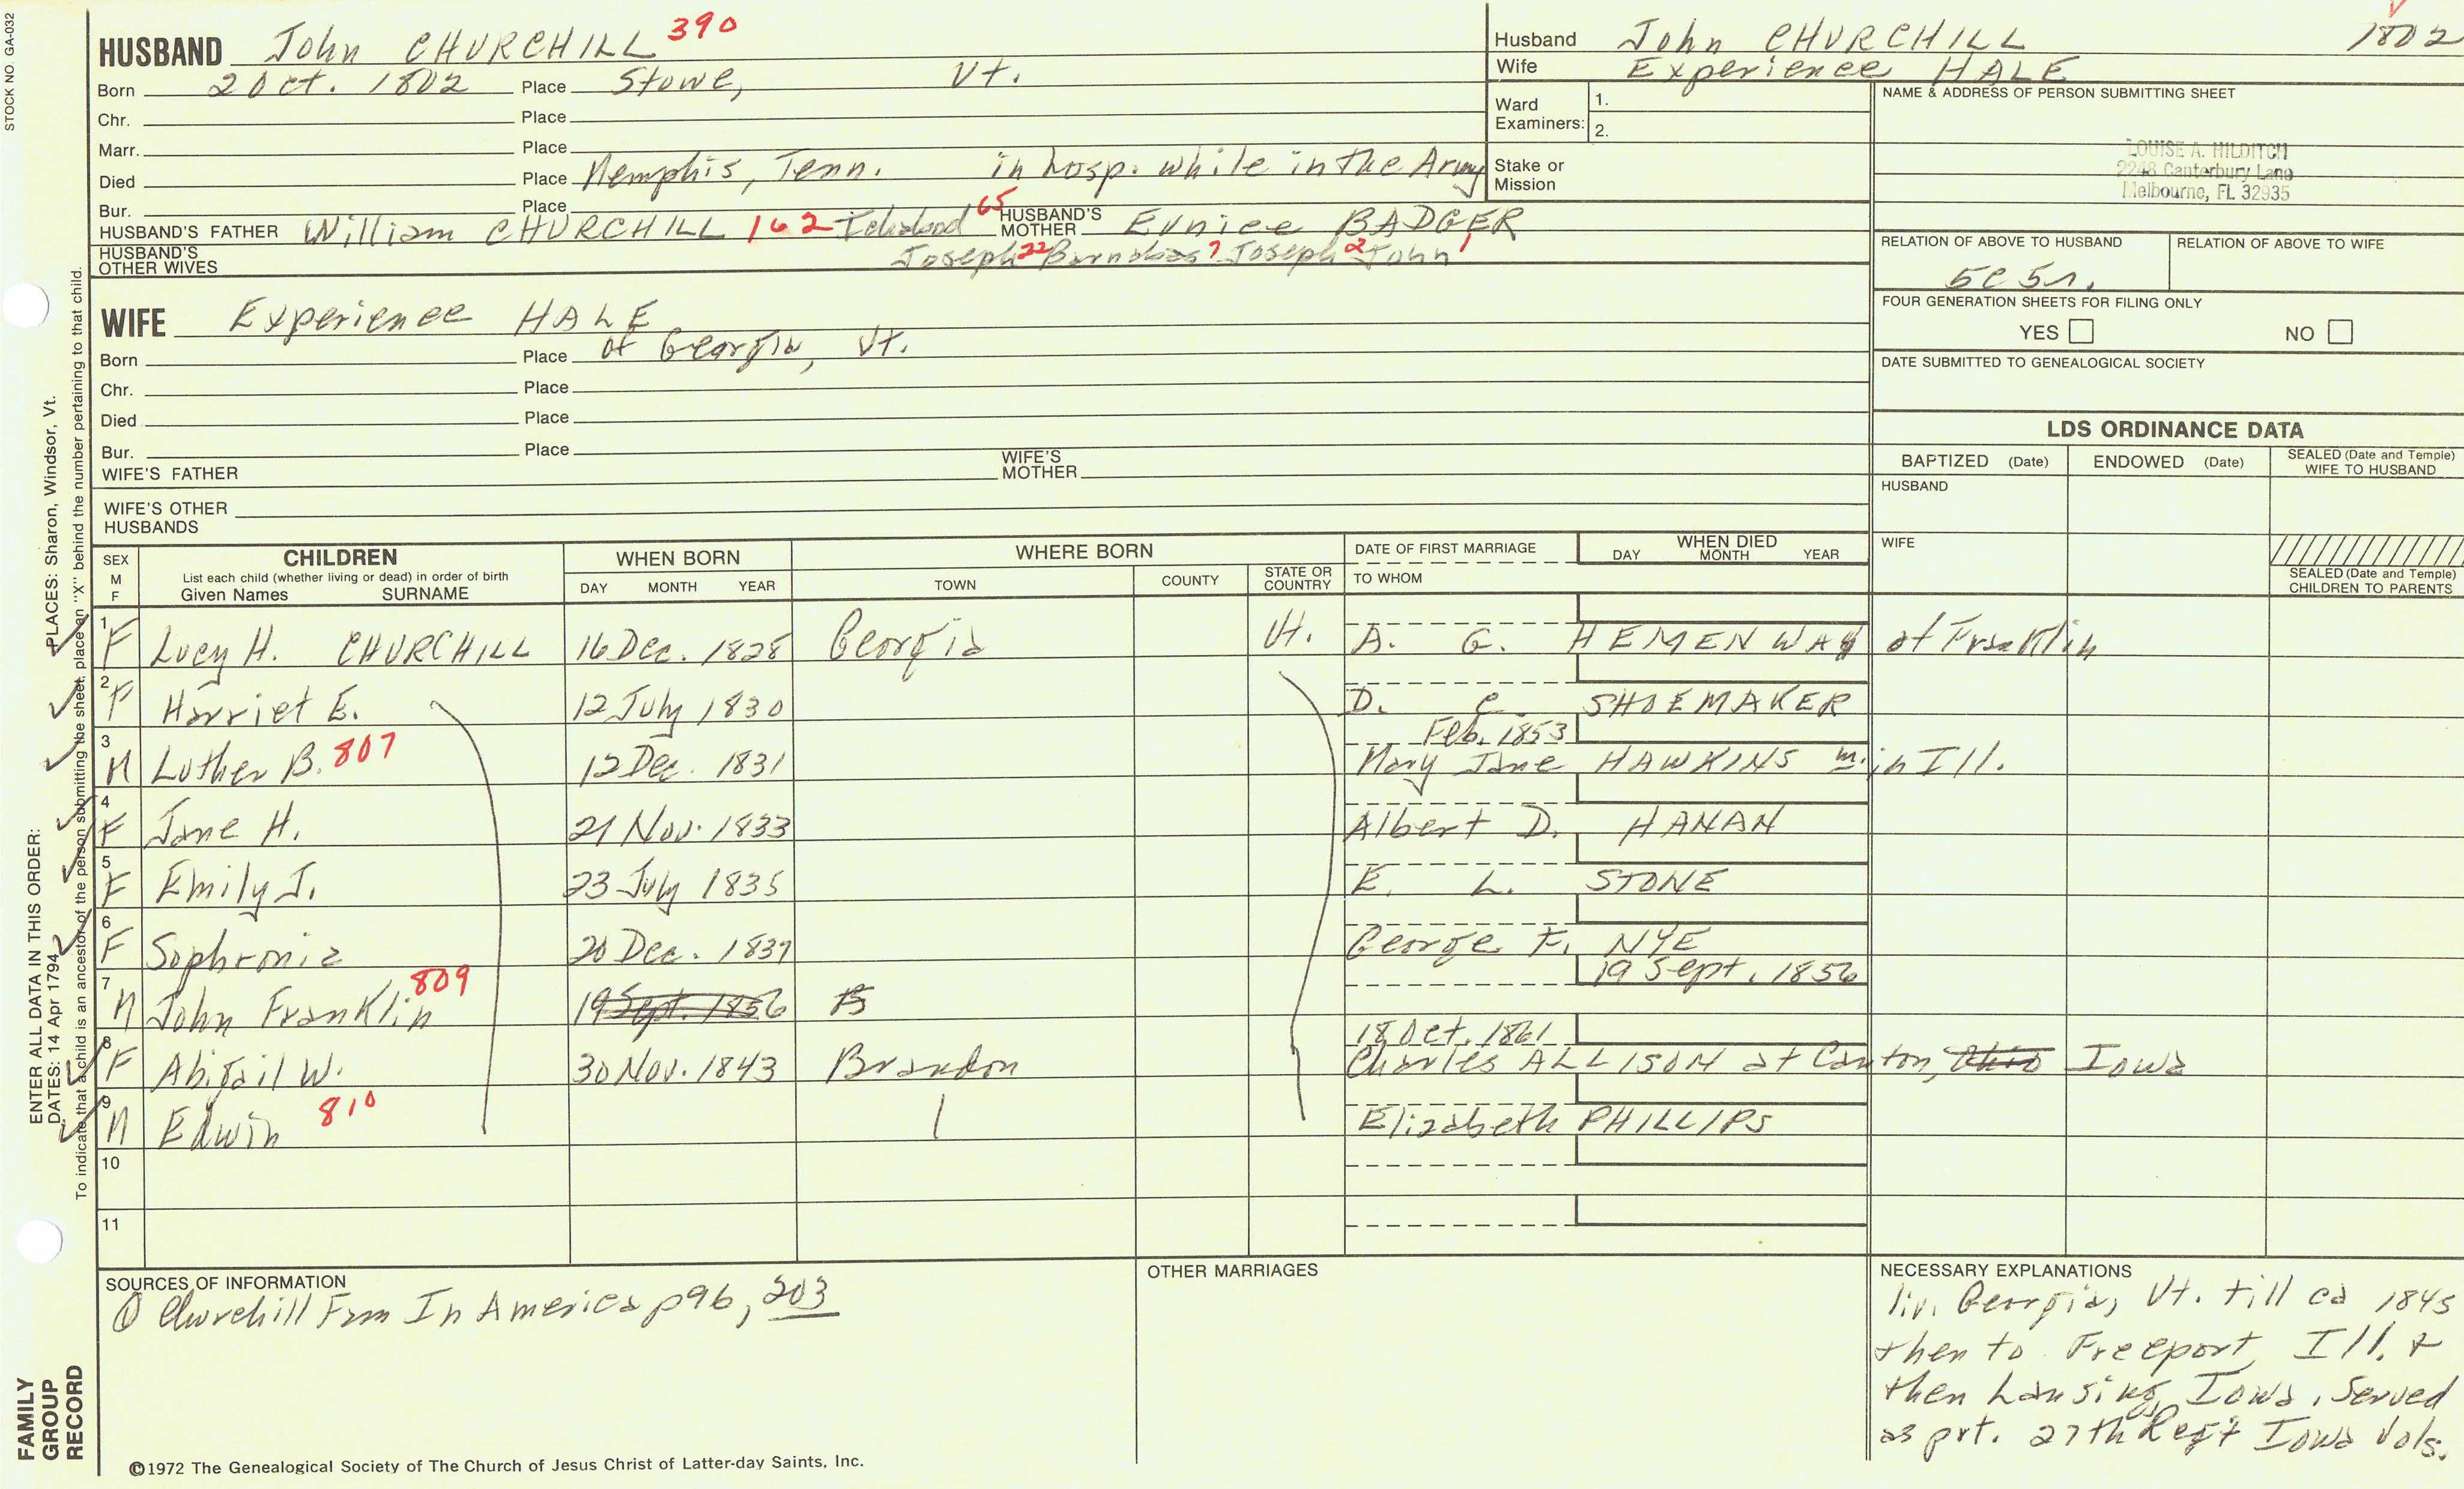 STOCK NO. GA-032
HUSBAND John CHURCHILL 390
Born 2 Oct. 1802 Place Stowe, Vt.
Chr. Place
Marr. Place
Died Place Memphis, Tenn. in hosp. while in the Army
Bur. Place
HUSBAND'S FATHER William CHURCHILL 162 Ichabod 65 HUSBAND'S MOTHER Eunice BADGER
HUSBAND'S OTHER WIVES Joseph 22 Barnabas 7 Joseph 2 John 1
WIFE Experience HALE
Born Place of Georgia, Vt.
Chr. Place
Died Place
Bur. Place
WIFE'S FATHER WIFE'S MOTHER
WIFE'S OTHER HUSBANDS
Husband John CHURCHILL 1802
Wife Experience HALE
Ward Examiners: 1.
2.
Stake or Mission
NAME & ADDRESS OF PERSON SUBMITTING SHEET
LOUISE A. HILDITCH
2248 Canterbury Lane
Melbourne, FL 32935
RELATION OF ABOVE TO HUSBAND RELATION OF ABOVE TO WIFE
5C 5r.
FOUR GENERATION SHEETS FOR FILING ONLY
YES NO
DATE SUBMITTED TO GENEALOGICAL SOCIETY
LDS ORDINANCE DATA
BAPTIZED (Date) ENDOWED (Date) SEALED (Date and Temple) WIFE TO HUSBAND
HUSBAND
WIFE
SEALED (Date and Temple) CHILDREN TO PARENTS
SEX M F CHILDREN WHEN BORN WHERE BORN DATE OF FIRST MARRIAGE WHEN DIED
List each child (whether living or dead) in order of birth
Given Names SURNAME DAY MONTH YEAR TOWN COUNTY STATE OR COUNTRY TO WHOM DAY MONTH YEAR
1 F Lucy H. CHURCHILL 16 Dec. 1828 Georgia Vt. A. G. HEMENWAY at Franklin
2 F Harriet E. 12 July 1830 D. C. SHOEMAKER
Feb. 1853
3 M Luther B. 807 12 Dec. 1831 Mary Jane HAWKINS m. in Ill.
4 F Jane H. 21 Nov. 1833 Albert D. HANAN
5 F Emily J. 23 July 1835 E. L. STONE
6 F Sophronia 20 Dec. 1837 George F. NYE
19 Sept. 1856
7 M John Franklin 809 19 Sept. 1856 B
18 Oct. 1861
8 F Abigail W. 30 Nov. 1843 Brandon Charles ALLISON at Canton, Ohio Iowa
9 M Edwin 810 Elizabeth PHILLIPS
10
11
SOURCES OF INFORMATION
① Churchill Fam In America p96, 203
OTHER MARRIAGES
NECESSARY EXPLANATIONS
liv. Georgia, Vt. till ca 1845
then to Freeport Ill. &
then Lansing, Iowa. Served
as prt. 27th Reg't Iowa Vols.
©1972 The Genealogical Society of The Church of Jesus Christ of Latter-day Saints, Inc.
FAMILY
GROUP
RECORD
ENTER ALL DATA IN THIS ORDER:
DATES: 14 Apr 1794
PLACES: Sharon, Windsor, Vt.
To indicate that a child is an ancestor of the person submitting the sheet, place an "X" behind the number pertaining to that child.